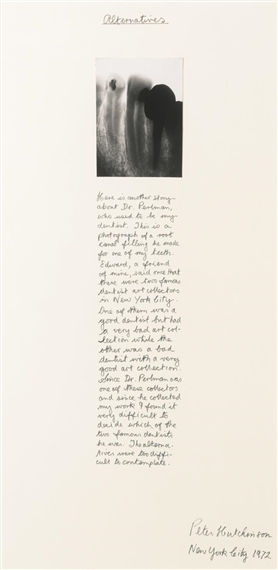 Alternatives
Here is another story
about Dr. Perlman,
who used to be my
dentist. This is a
photograph of a root
canal filling he made
for one of my teeth.
Edward, a friend
of mine, said once that
there were two famous
dentist art collectors
in New York City.
One of them was a
good dentist but had
a very bad art col-
lection while the
other was a bad
dentist with a very
good art collection.
Since Dr. Perlman was
one of these collectors
and since he collected
my work I found it
very difficult to
decide which of the
two famous dentists
he was. The alterna-
tives were too diffi-
cult to contemplate.
Peter Hutchinson
New York City 1972